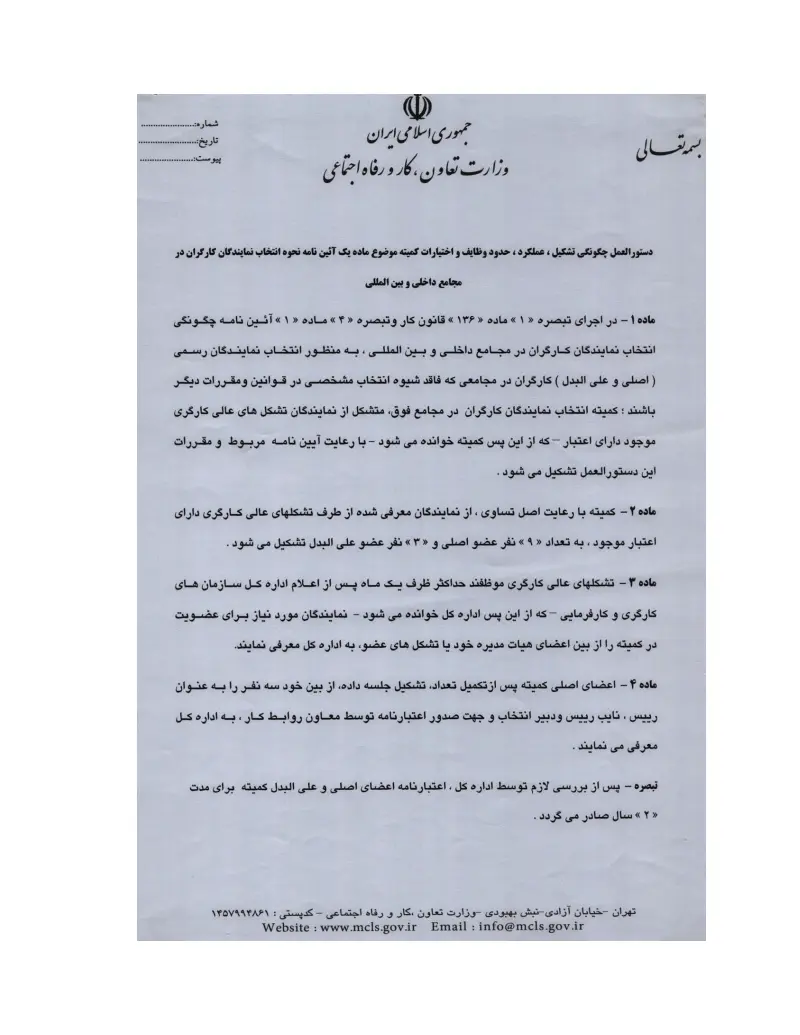 بسمه تعالی
جمهوری اسلامی ایران
وزارت تعاون، کار و رفاه اجتماعی
شماره:......................
تاریخ:........................
پیوست:......................
دستورالعمل چگونگی تشکیل ، عملکرد ، حدود وظایف و اختیارات کمیته موضوع ماده یک آئین نامه نحوه انتخاب نمایندگان کارگران در
مجامع داخلی و بین المللی
ماده ۱ – در اجرای تبصره « ۱ » ماده « ۱۳۶ » قانون کار وتبصره « ۴ » ماده « ۱ » آئین نامه چگونگی
انتخاب نمایندگان کارگران در مجامع داخلی و بین المللی ، به منظور انتخاب نمایندگان رسمی
( اصلی و علی البدل ) کارگران در مجامعی که فاقد شیوه انتخاب مشخصی در قوانین ومقررات دیگر
باشند ؛ کمیته انتخاب نمایندگان کارگران در مجامع فوق، متشکل از نمایندگان تشکل های عالی کارگری
موجود دارای اعتبار – که از این پس کمیته خوانده می شود – با رعایت آیین نامه مربوط و مقررات
این دستورالعمل تشکیل می شود .
ماده ۲ – کمیته با رعایت اصل تساوی ، از نمایندگان معرفی شده از طرف تشکلهای عالی کارگری دارای
اعتبار موجود ، به تعداد « ۹ » نفر عضو اصلی و « ۳ » نفر عضو علی البدل تشکیل می شود .
ماده ۳ – تشکلهای عالی کارگری موظفند حداکثر ظرف یک ماه پس از اعلام اداره کل سازمان های
کارگری و کارفرمایی – که از این پس اداره کل خوانده می شود – نمایندگان مورد نیاز برای عضویت
در کمیته را از بین اعضای هیات مدیره خود یا تشکل های عضو، به اداره کل معرفی نمایند.
ماده ۴ – اعضای اصلی کمیته پس ازتکمیل تعداد، تشکیل جلسه داده، از بین خود سه نفر را به عنوان
رییس ، نایب رییس ودبیر انتخاب و جهت صدور اعتبارنامه توسط معاون روابط کار ، به اداره کل
معرفی می نمایند .
تبصره – پس از بررسی لازم توسط اداره کل ، اعتبارنامه اعضای اصلی و علی البدل کمیته برای مدت
« ۲ » سال صادر می گردد .
تهران –خیابان آزادی–نبش بهبودی –وزارت تعاون ،کار و رفاه اجتماعی – کدپستی : ۱۴۵۷۹۹۴۸۶۱
Website : www.mcls.gov.ir Email : info@mcls.gov.ir